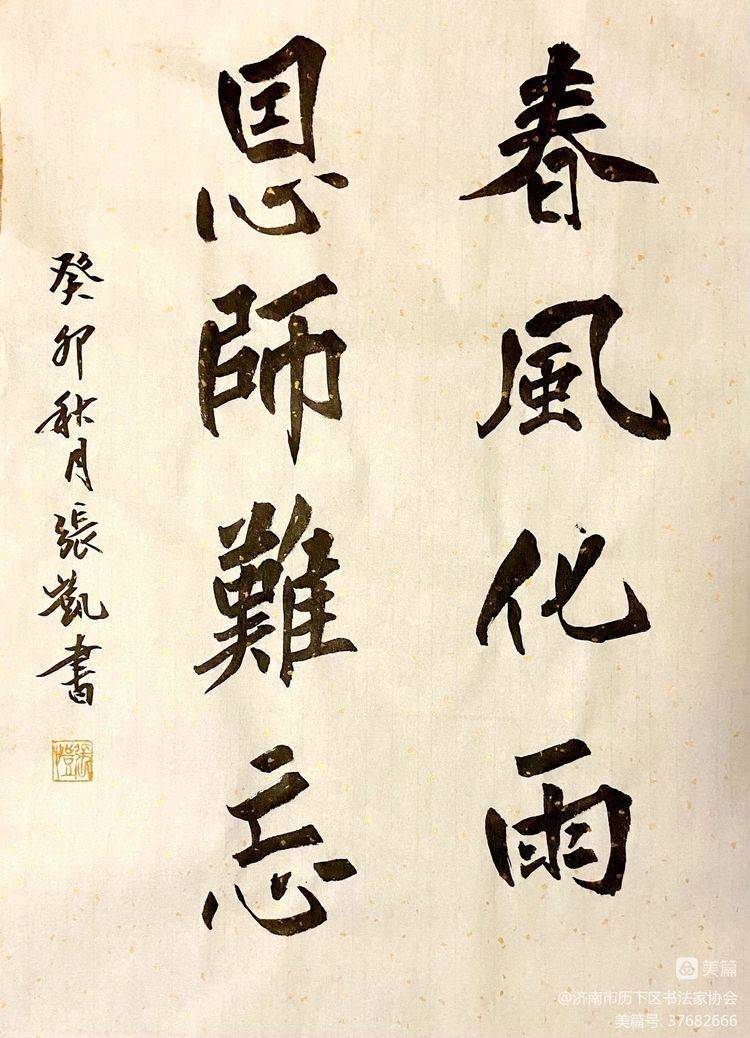 春風化雨
恩師難忘
癸卯秋月張凱書
美篇
@济南市历下区书法家协会
美篇号: 37682666